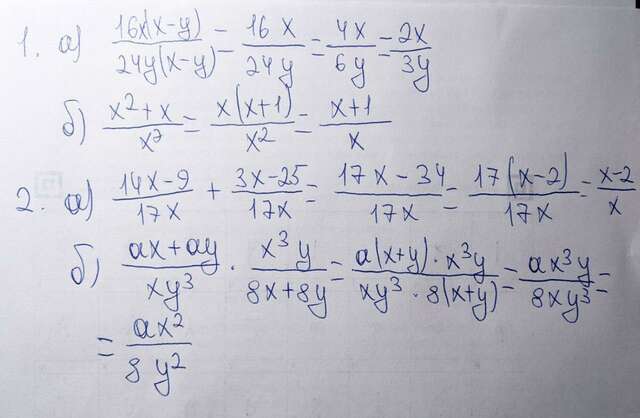 1. а) 16x(x-y)/24y(x-y) = 16x/24y = 4x/6y = 2x/3y
б) x²+x/x² = x(x+1)/x² = x+1/x
2. а) 14x-9/17x + 3x-25/17x = 17x-34/17x = 17(x-2)/17x = x-2/x
б) ax+ay/xy³ · x³y/8x+8y = a(x+y)·x³y/xy³·8(x+y) = ax³y/8xy³ =
= ax²/8y²